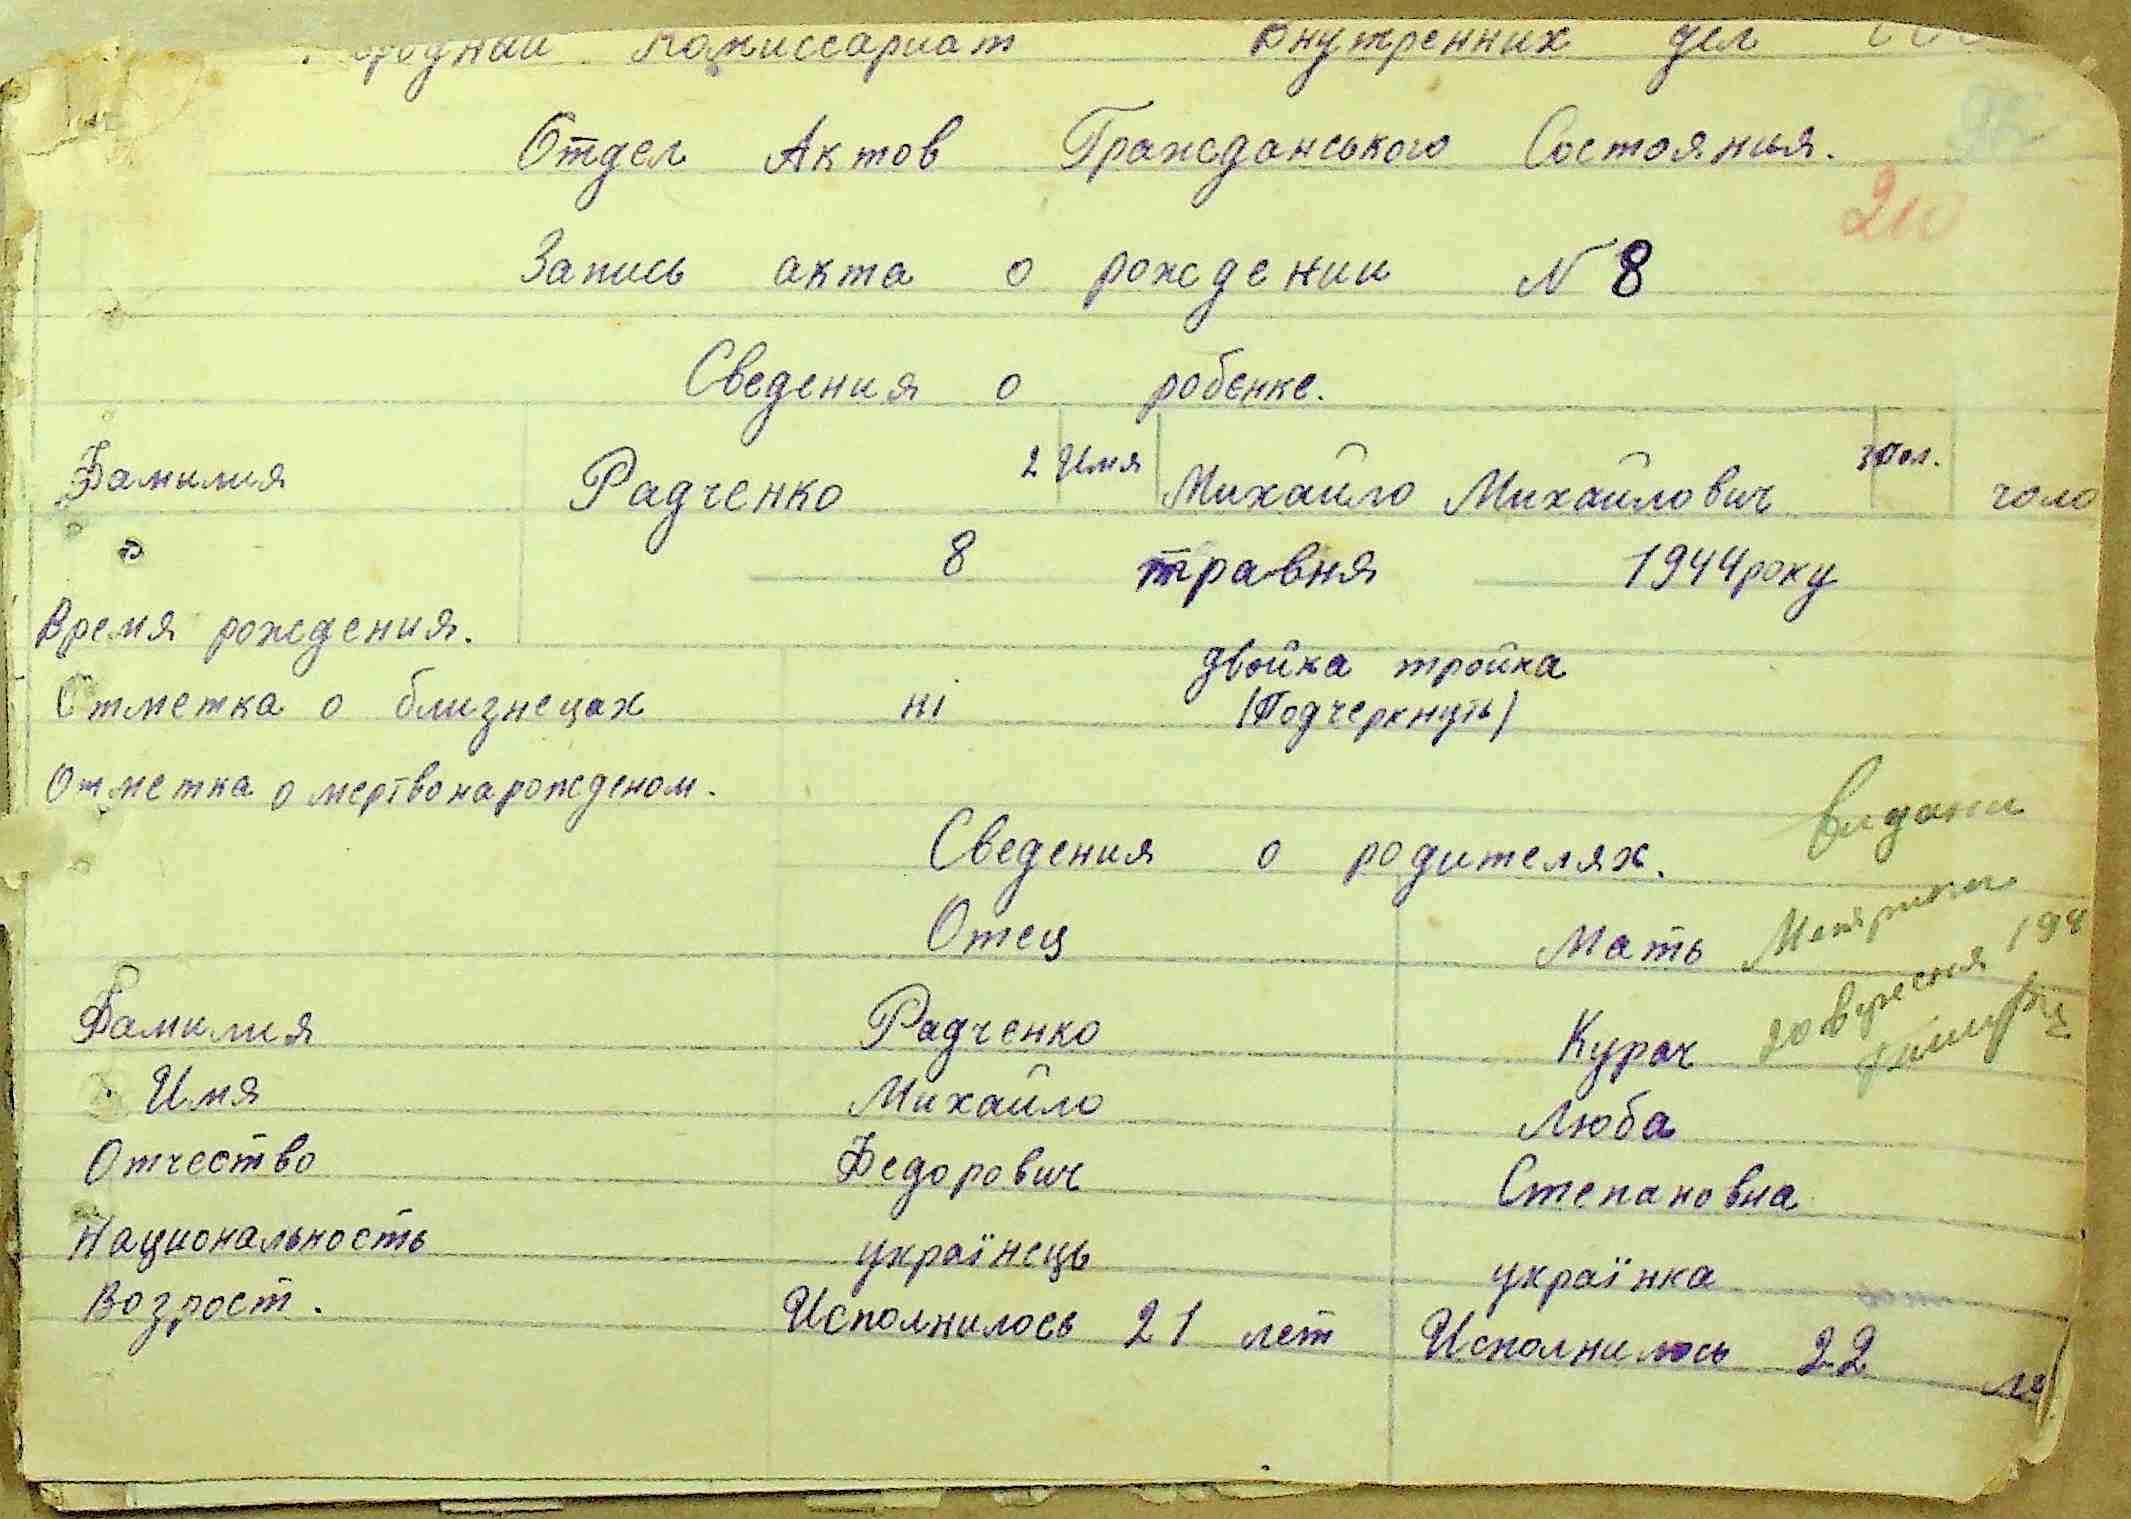 Комиссариат Внутренних дел
Отдел Актов Гражданського Состояния.
210
Запись акта о рождении N 8
Сведения о робенке.
Фамилия Радченко 2 Имя Михайло Михайлович 3 Пол. чоло
8 травня 1944 року
Время рождения.
двойка тройка
Отметка о близнецах ні (Подчеркнуть)
Отметка о мертвонарожденом.
видани
Сведения о родителях.
Отец Мать
20 вересня 194
Фамилия Радченко Курач
Имя Михайло Люба
Отчество Федорович Степановна
Национальность українець українка
Возрост. Исполнилось 21 лет Исполнилось 22